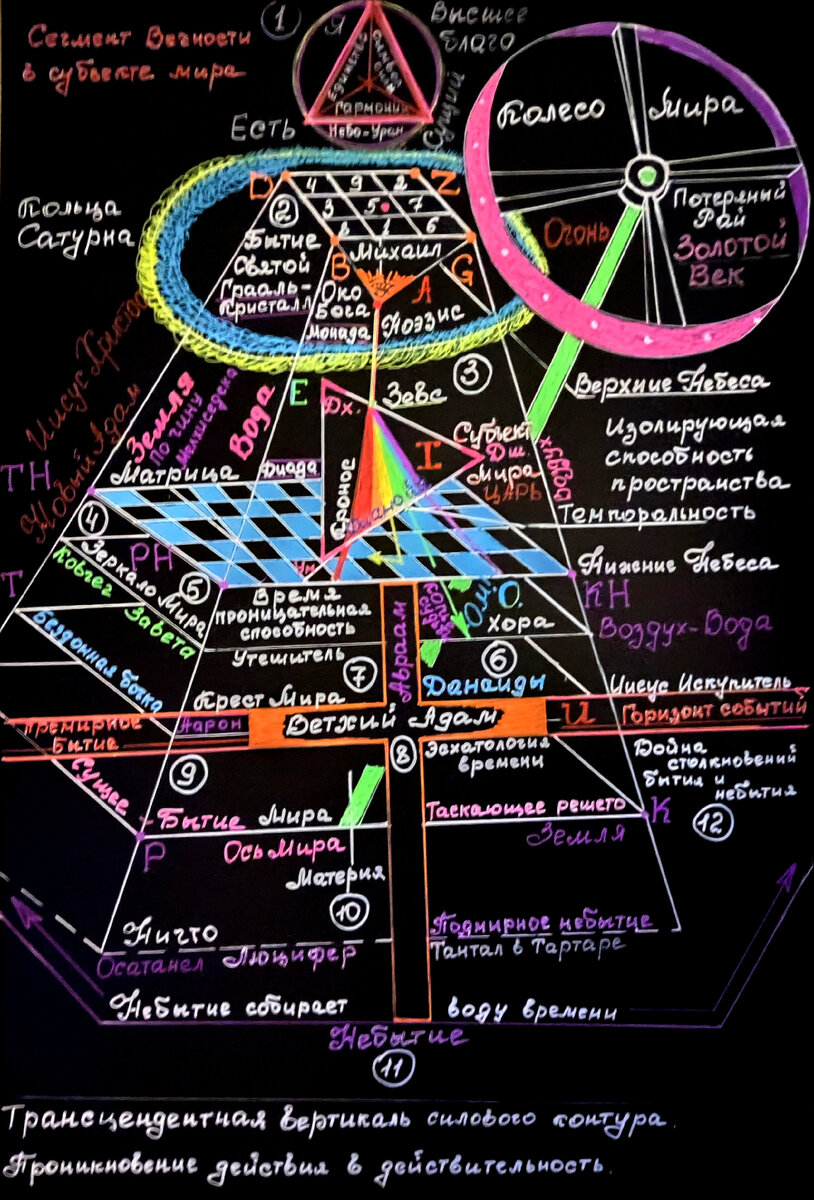 Сегмент Вечности
в субъекте мира
1
Я
Высшее
благо
Единство
Гармония
Небо-Уран
Сущий
Есть
Колесо Мира
Потерянный
Рай
Золотой
Век
Кольца
Сатурна
D
4 9 2
Z
3 5 7
8 1 6
2
Бытие
Святой
Грааль-
Кристалл
Михаил
B
G
Око
Бога
Монада
A
Поэзис
Огонь
3
Верхние Небеса
Иисус Христос
Новый Адам
Земля
По чину
Мелхиседека
Вода
E
Дх.
Зевс
Хронос
I
Субъект
Дш.
Мира
Царь
Воздух
Изолирующая
способность
пространства
Темпоральность
ТН
Матрица
Диада
Ум
4
РН
Зеркало Мира
5
Нижение Небеса
КН
Т
Ковчег
Завета
Время
проницательная
способность
Утешитель
О.
Хора
Воздух-Вода
Бездонная бочка
7
Авраам
6
Данаиды
Иисус Искупитель
Крест Мира
Премирное
Бытие
Аарон
Ветхий Адам
И
Горизонт событий
8
Эсхатология
времени
Война
столкновений
бытия и
небытия
9
Сущее
-Бытие Мира
Таскающее решето
К
12
Р
Ось Мира
Земля
Материя
10
Ничто
Подмирное небытие
Осатанел Люцифер
Тантал в Тартаре
Небытие собирает воду времени
Небытие
11
Трансцендентная вертикаль силового контура.
Проникновение действия в действительность.